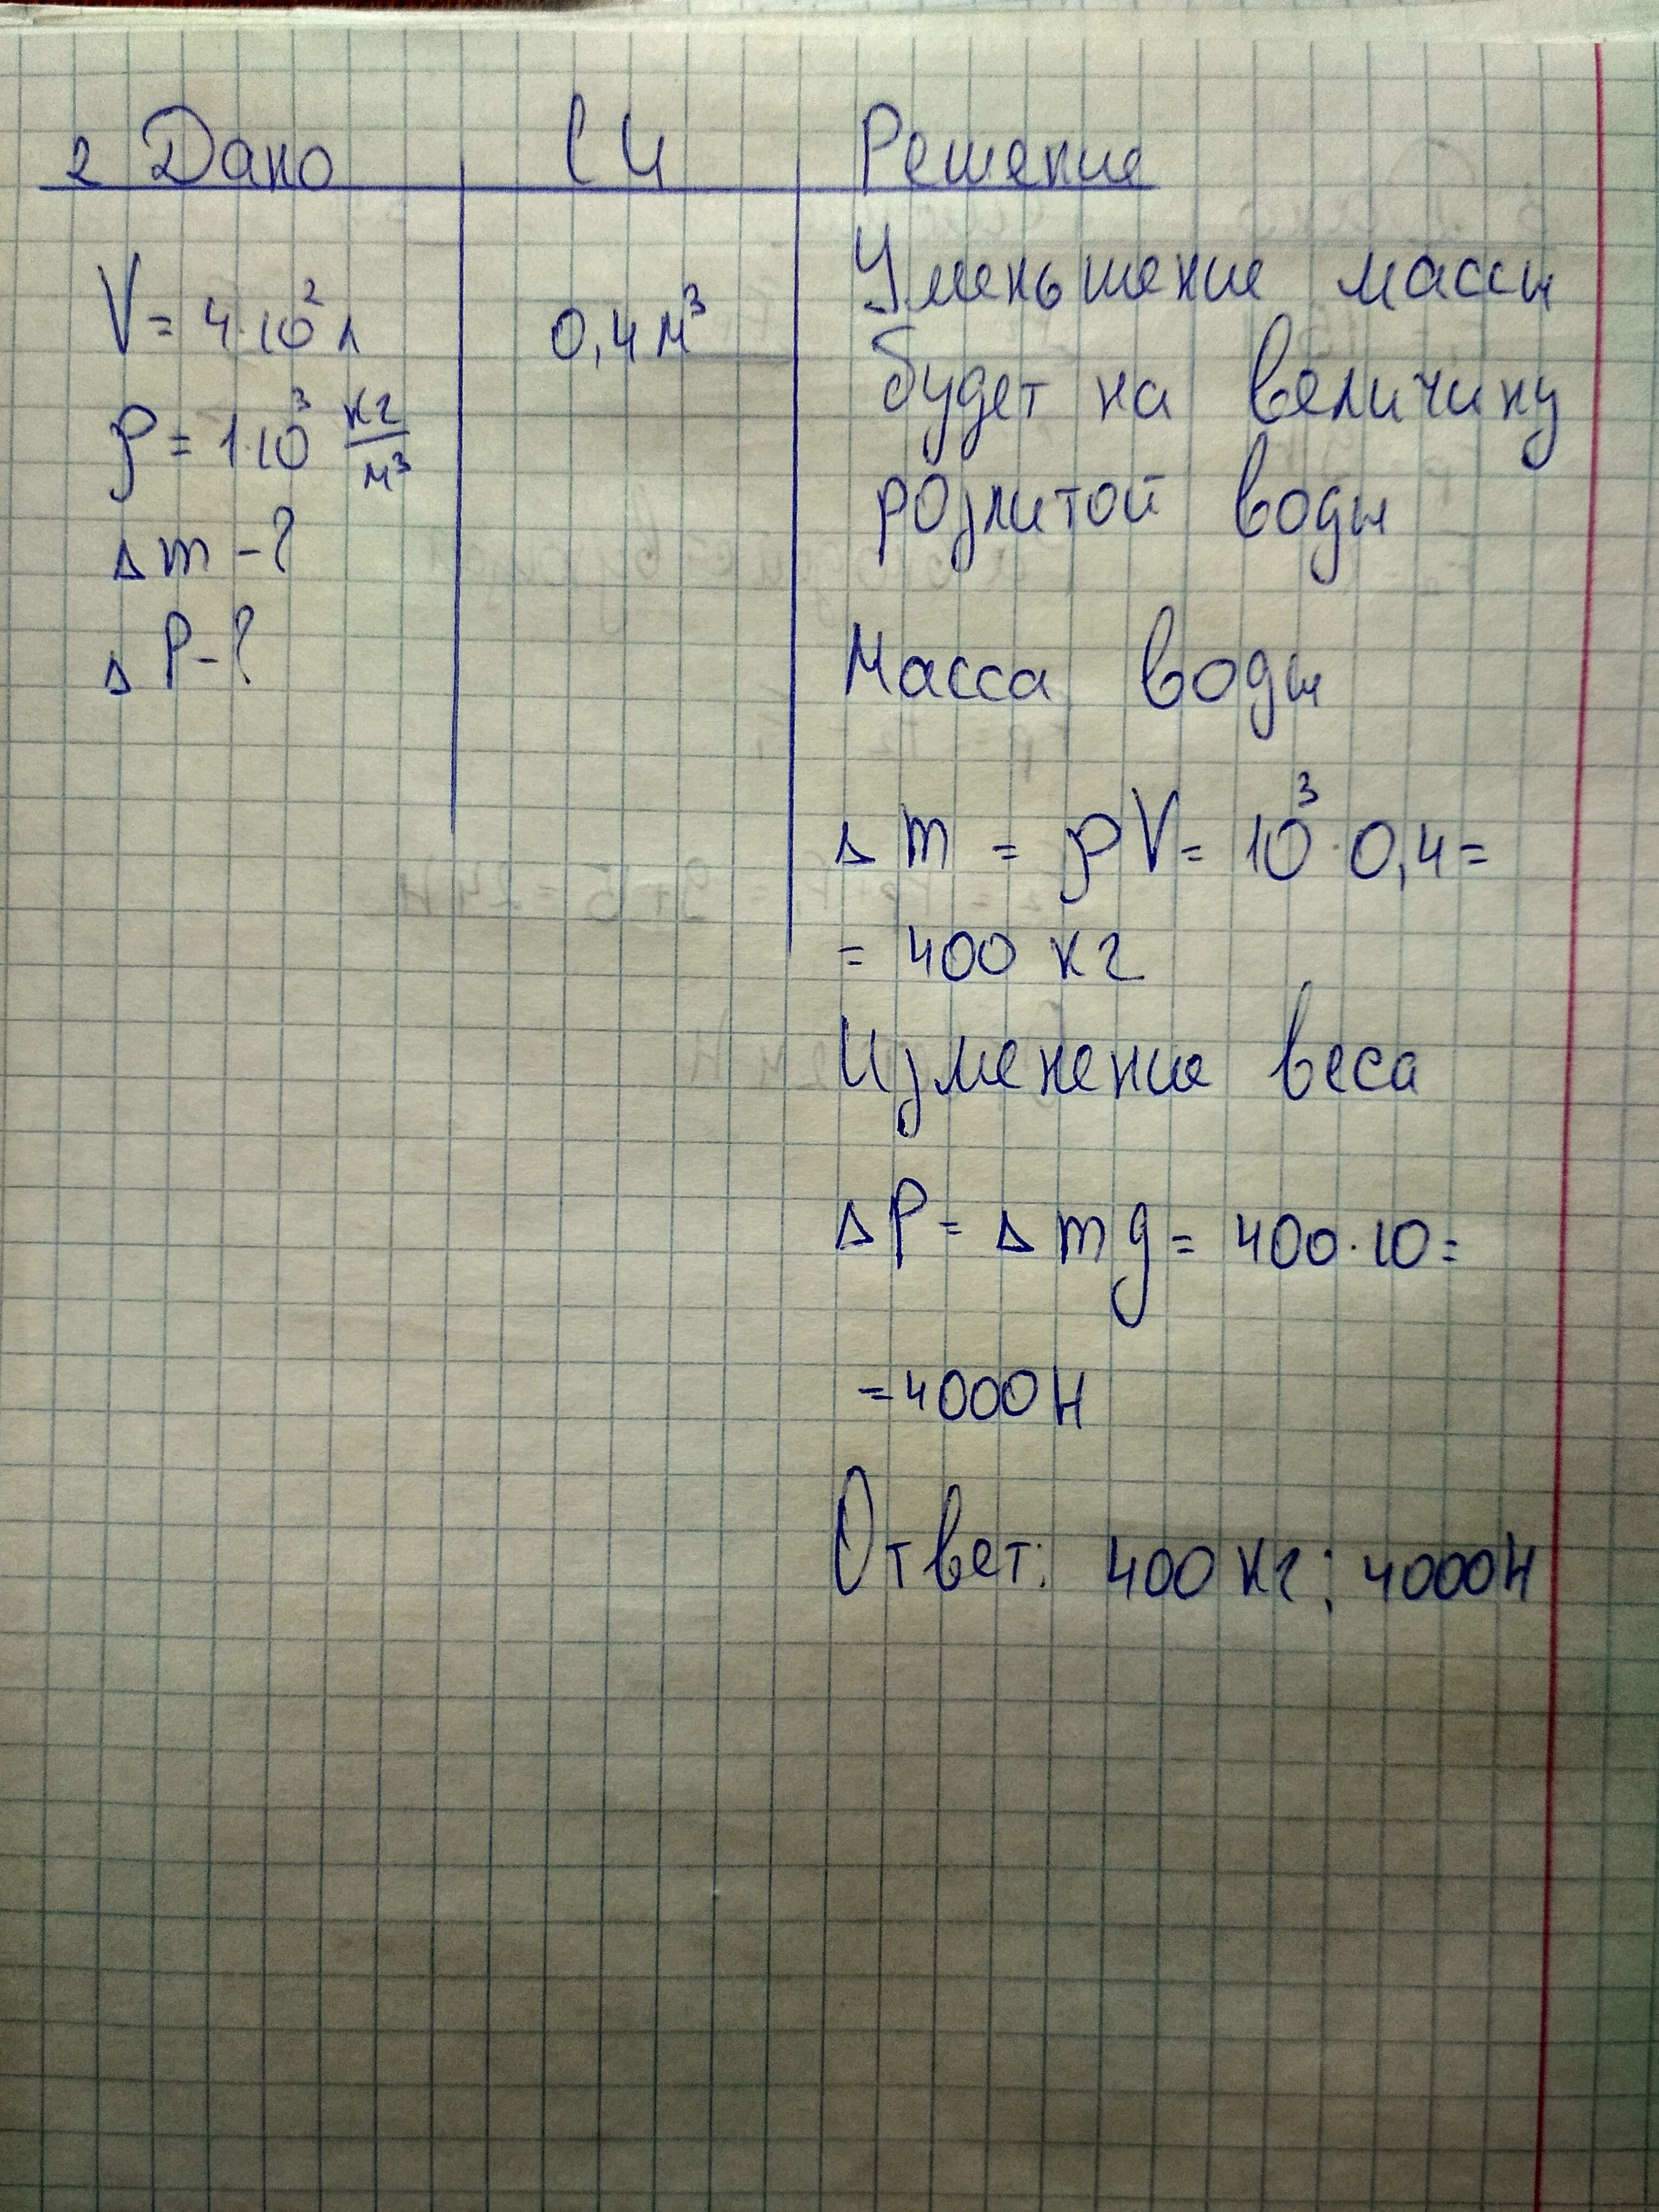 2 Дано СИ Решение
V = 4·10² л 0,4 м³
ρ = 1·10³ кг/м³
Δ m - ?
Δ P - ?
Уменьшение массы
будет на величину
розлитой воды
Масса воды
Δ m = ρV = 10³·0,4 =
= 400 кг
Изменение веса
ΔP = Δ m g = 400·10 =
= 4000 Н
Ответ: 400 кг; 4000 Н